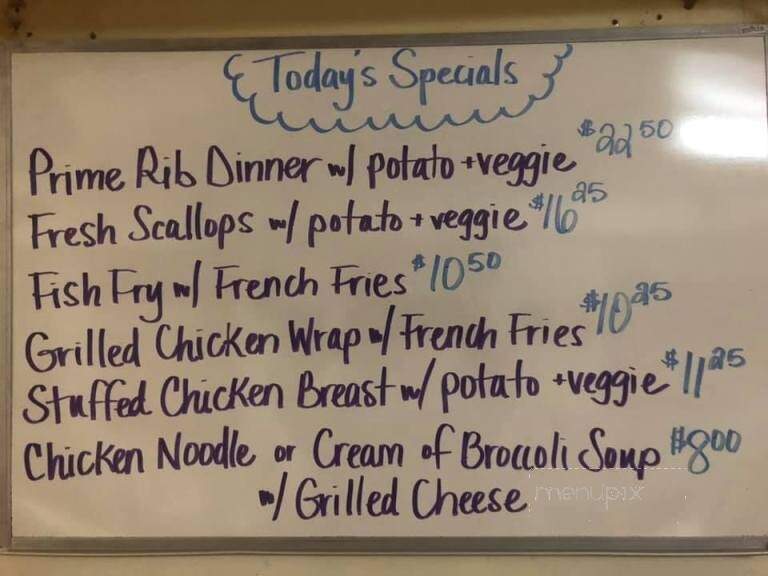 Today's Specials
Prime Rib Dinner w/ potato + veggie $22 50
Fresh Scallops w/ potato + veggie $16 25
Fish Fry w/ French Fries $10 50
Grilled Chicken Wrap w/ French Fries $10 25
Stuffed Chicken Breast w/ potato + veggie $11 25
Chicken Noodle or Cream of Broccoli Soup $8 00
w/ Grilled Cheese
menupix